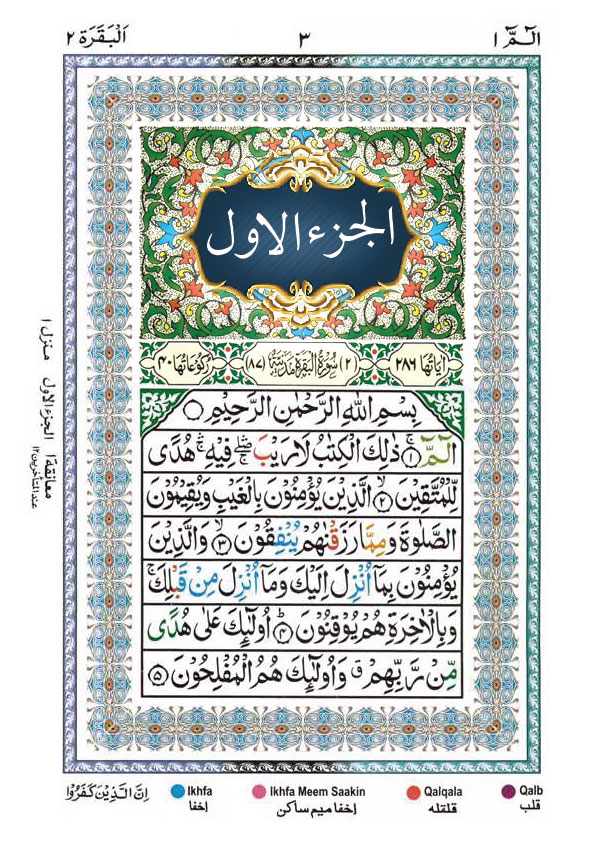 الٓمّٓ ١
٣
اَلْبَقَرَة ٢
الجزء الاول
اٰيَاتُهَا ٢٨٦
(٢) سُوْرَةُ الْبَقَرَةِ مَدَنِيَّةٌ (٨٧)
رُكُوْعَاتُهَا ٤٠
بِسْمِ اللّٰهِ الرَّحْمٰنِ الرَّحِيْمِ
الٓمّٓ ۚ﴿١﴾ ذٰلِكَ الْكِتٰبُ لَا رَيْبَ ۛۖۚ فِيْهِ ۛۚ هُدًى
لِّلْمُتَّقِيْنَ ۙ﴿٢﴾ الَّذِيْنَ يُؤْمِنُوْنَ بِالْغَيْبِ وَيُقِيْمُوْنَ
الصَّلٰوةَ وَمِمَّا رَزَقْنٰهُمْ يُنْفِقُوْنَ ۙ﴿٣﴾ وَالَّذِيْنَ
يُؤْمِنُوْنَ بِمَآ اُنْزِلَ اِلَيْكَ وَمَآ اُنْزِلَ مِنْ قَبْلِكَ ۚ
وَبِالْاٰخِرَةِ هُمْ يُوْقِنُوْنَ ؕ﴿٤﴾ اُولٰٓئِكَ عَلٰى هُدًى
مِّنْ رَّبِّهِمْ ۗ وَاُولٰٓئِكَ هُمُ الْمُفْلِحُوْنَ ﴿٥﴾
منزل ١
الجزء الاول
معانقة ١
عند المتأخرين ١٢
اِنَّ الَّذِيْنَ كَفَرُوْا
Ikhfa
إخفا
Ikhfa Meem Saakin
إخفا ميم ساكن
Qalqala
قلقله
Qalb
قلب